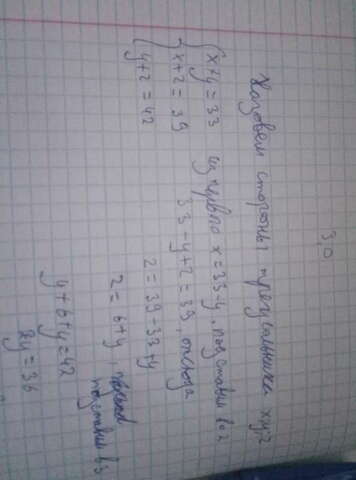 3,0
Назовем стороны треугольника xyz
{x+y=33
{x+z=39
{y+z=42
из первого x=33-y, подставим во 2
33-y+z=39, отсюда
z=39-33+y
z=6+y,
подставим в 3
y+6+y=42
2y=36